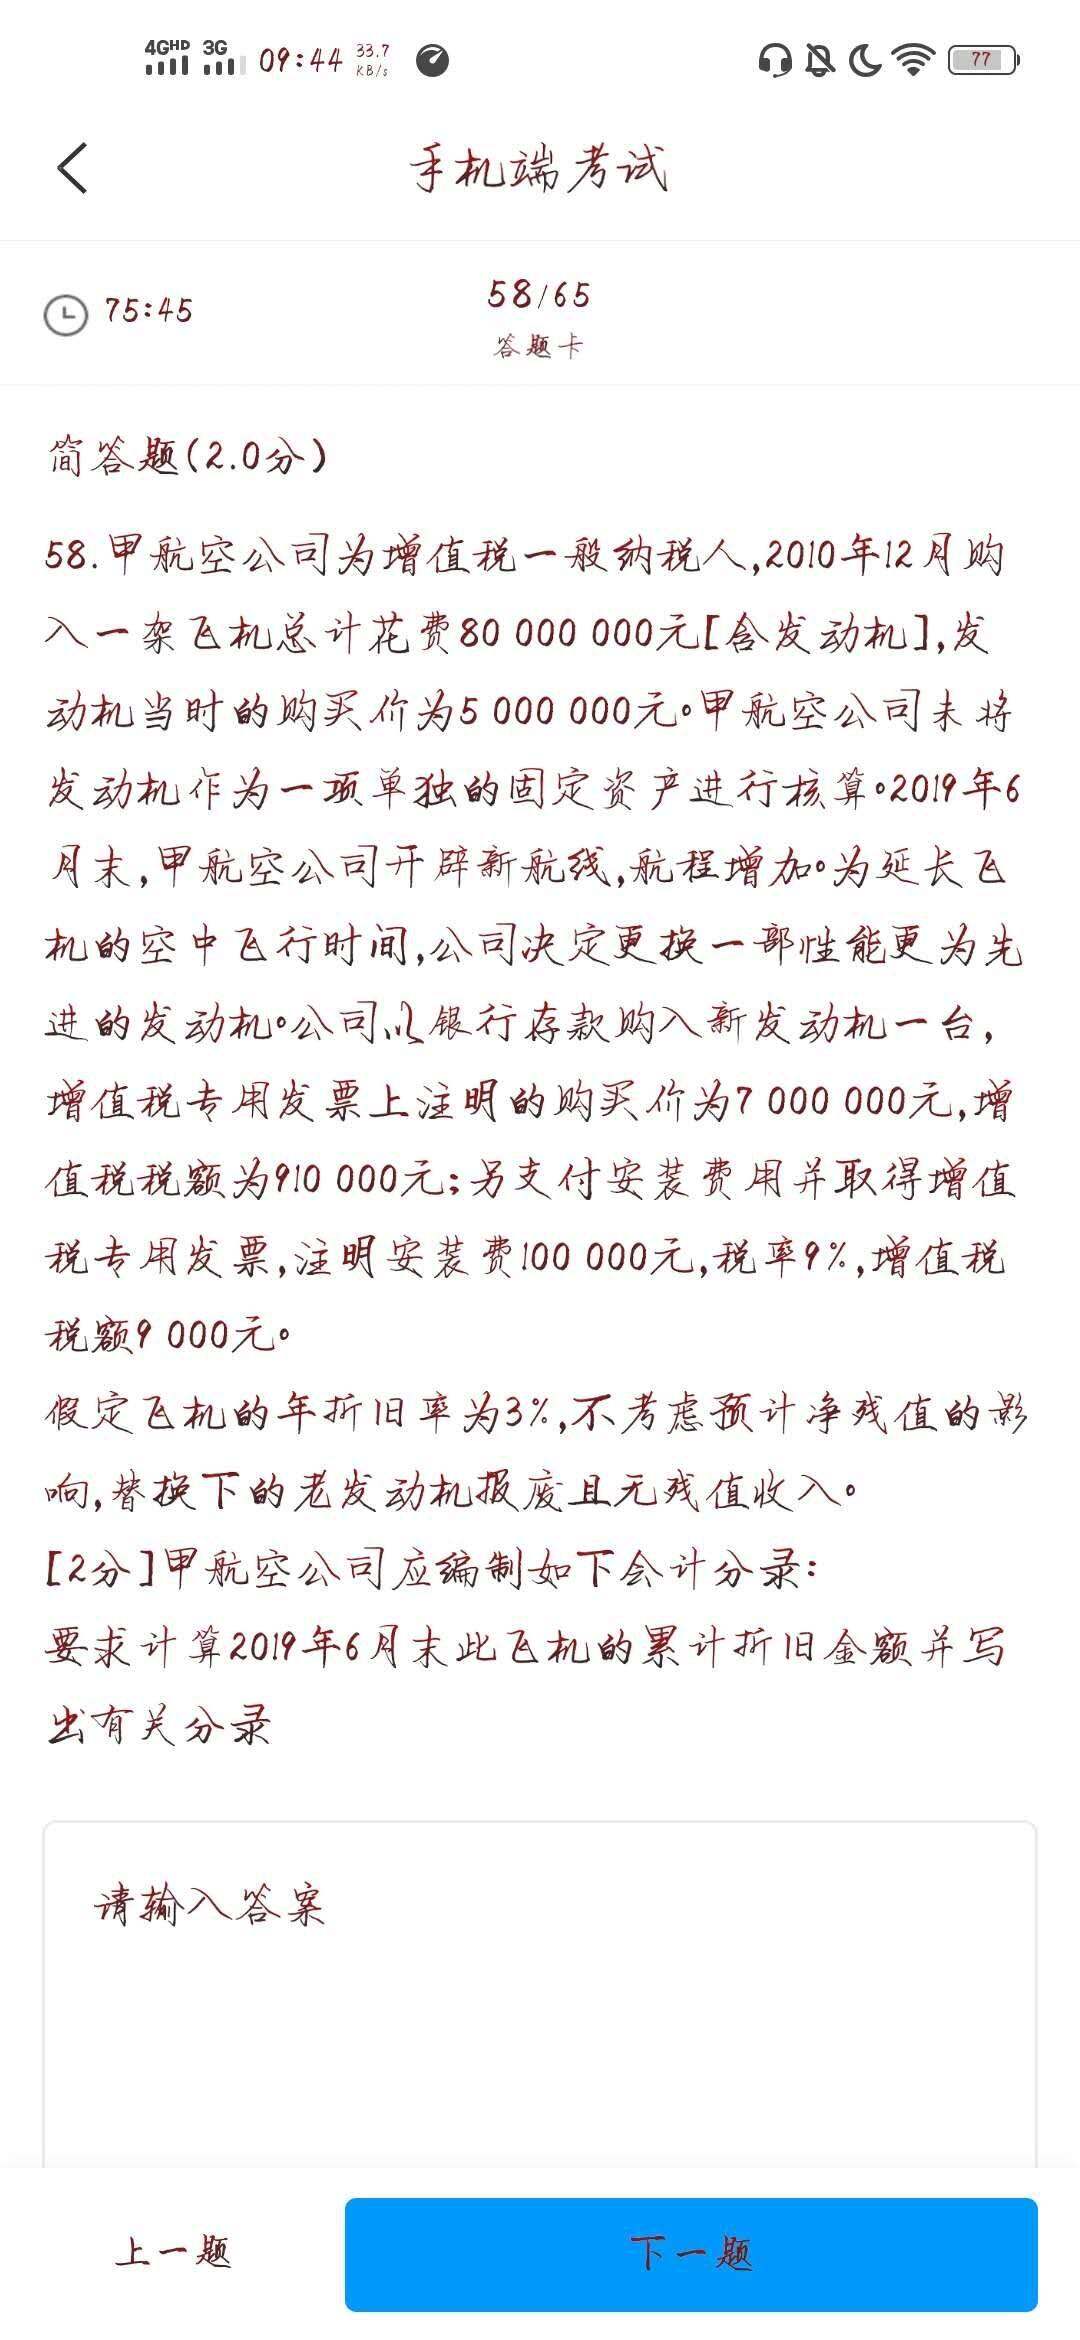 4GHD 3G 09:44 33.7 KB/s 77
手机端考试
75:45
58/65
答题卡
简答题(2.0分)
58.甲航空公司为增值税一般纳税人,2010年12月购
入一架飞机总计花费80 000 000元[含发动机],发
动机当时的购买价为5 000 000元。甲航空公司未将
发动机作为一项单独的固定资产进行核算。2019年6
月末,甲航空公司开辟新航线,航程增加。为延长飞
机的空中飞行时间,公司决定更换一部性能更为先
进的发动机。公司以银行存款购入新发动机一台,
增值税专用发票上注明的购买价为7 000 000元,增
值税税额为910 000元;另支付安装费用并取得增值
税专用发票,注明安装费100 000元,税率9%,增值税
税额9 000元。
假定飞机的年折旧率为3%,不考虑预计净残值的影
响,替换下的老发动机报废且无残值收入。
[2分]甲航空公司应编制如下会计分录:
要求计算2019年6月末此飞机的累计折旧金额并写
出有关分录
请输入答案
上一题
下一题